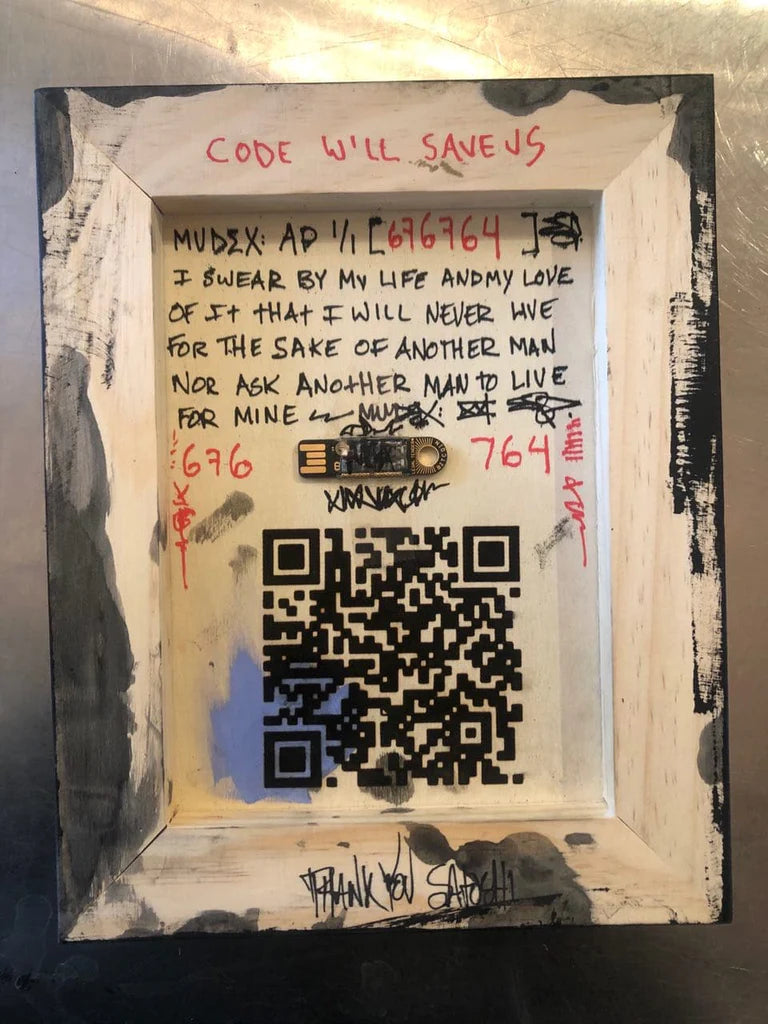 CODE W'LL SAVE US
MUDEX: AP 1/1 [676764]
I SWEAR BY MY LIFE AND MY LOVE
OF IT THAT I WILL NEVER LIVE
FOR THE SAKE OF ANOTHER MAN
NOR ASK ANOTHER MAN TO LIVE
FOR MINE MUDEX:
676 764
THANK YOU SATOSHI